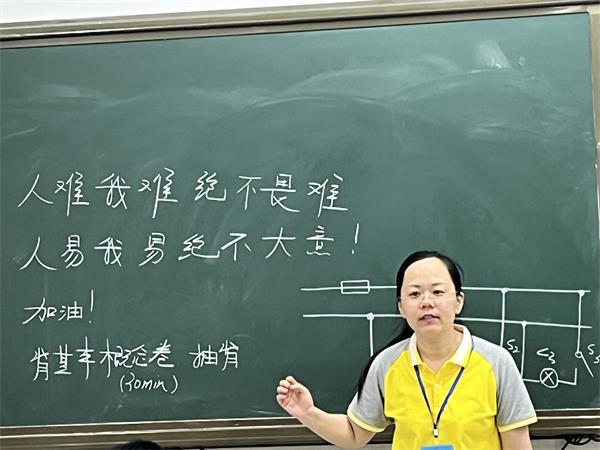 人难我难绝不畏难
人易我易绝不大意!
加油!
背基本概念卷 抽背
(30min)
S₂
L₃
S₃